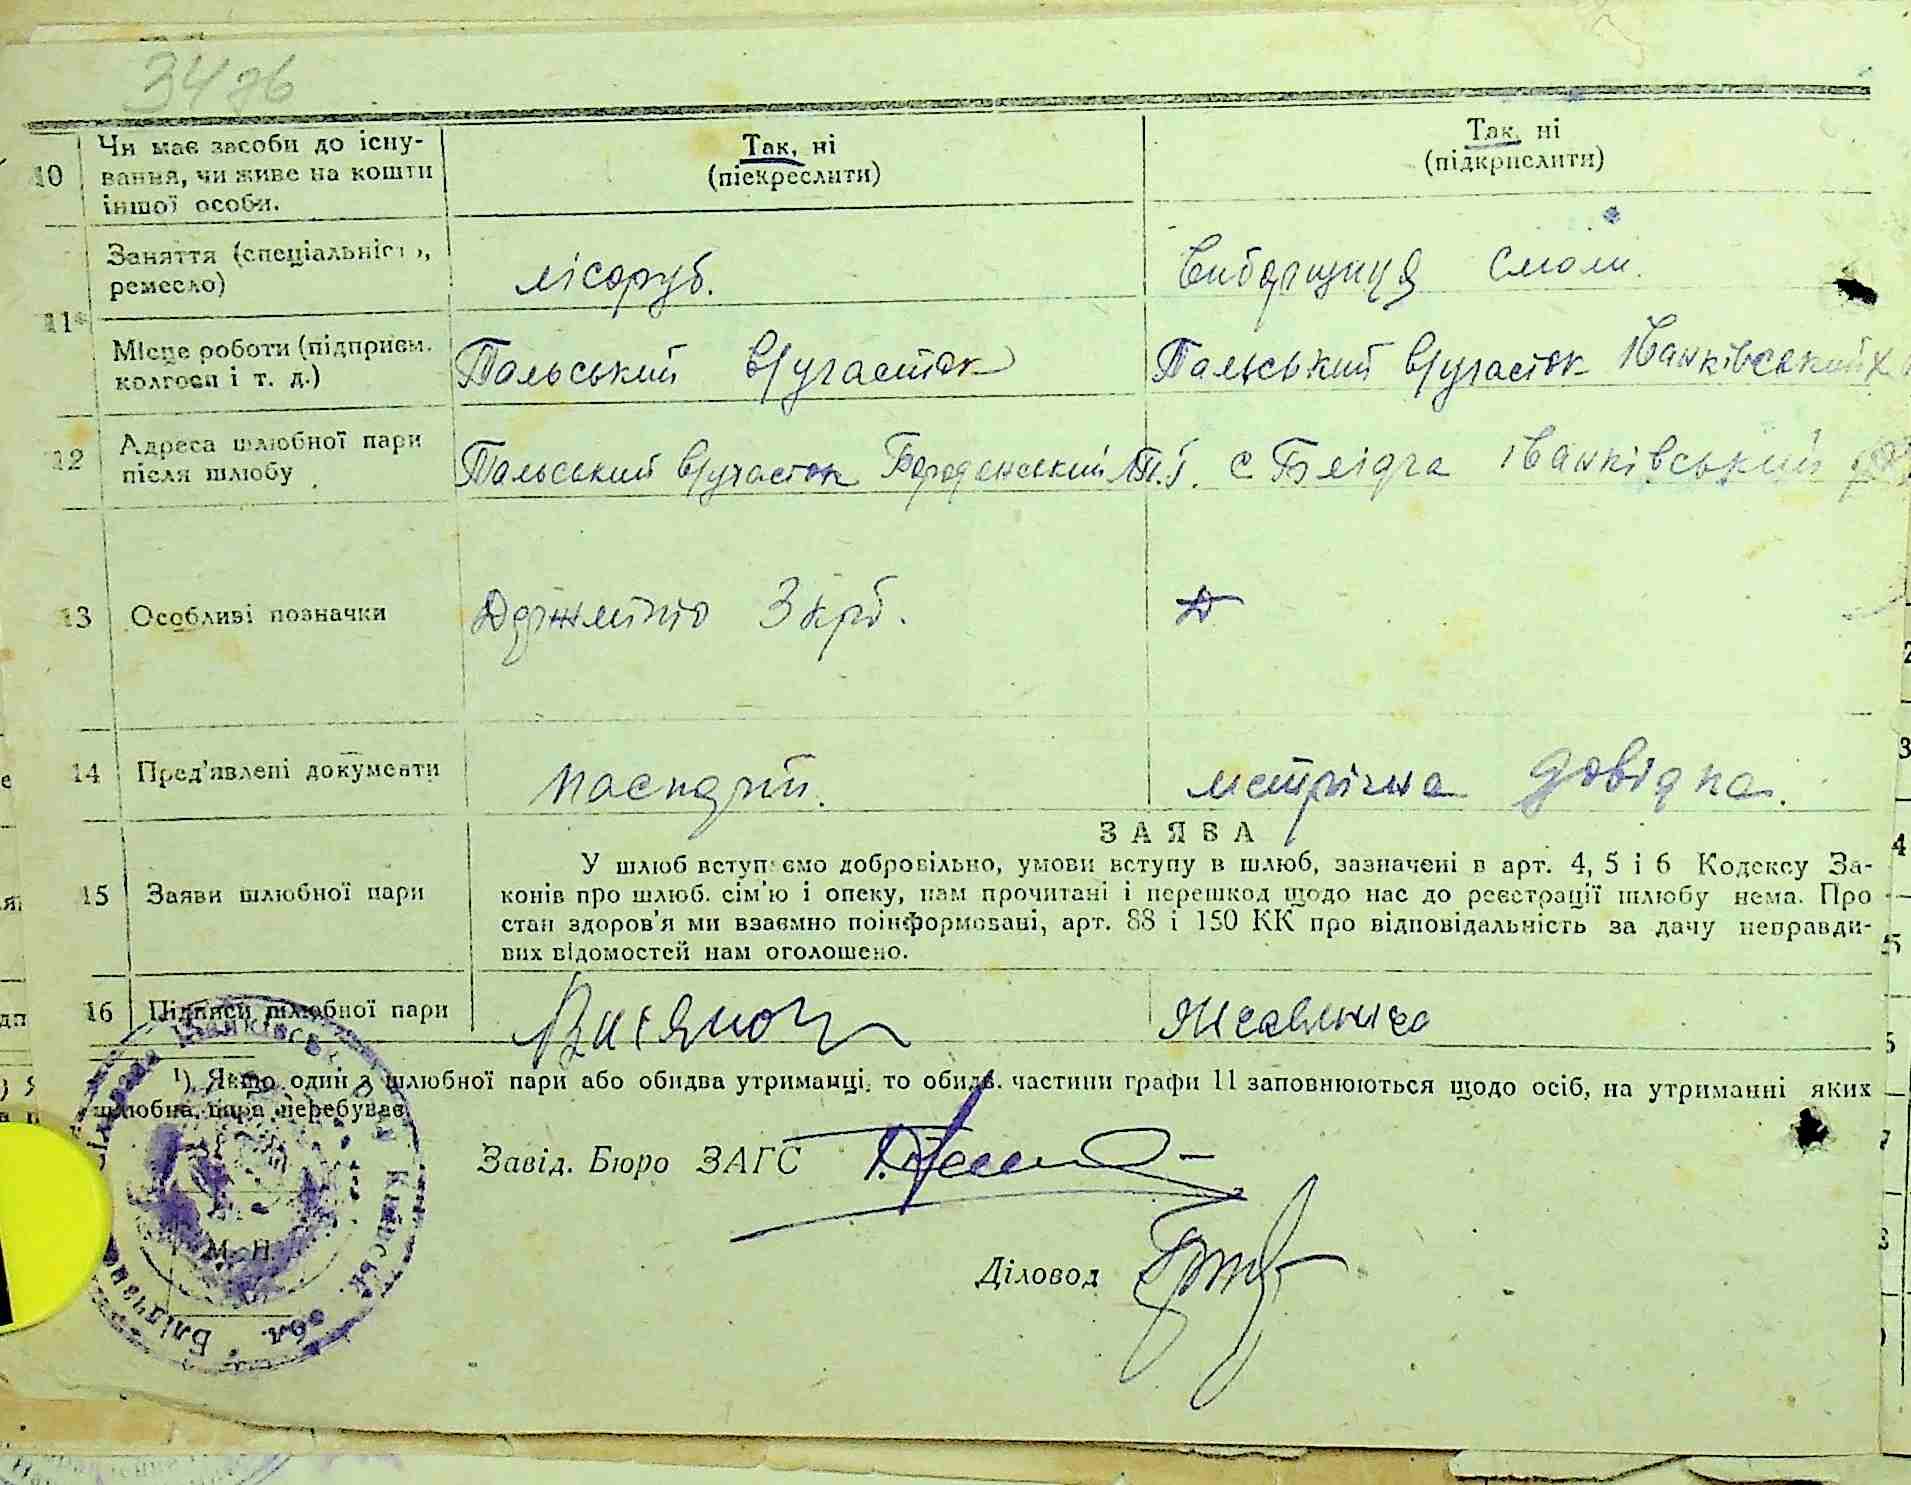 34 зв
10 Чи має засоби до існу-
вання, чи живе на кошти
іншої особи.
Так, ні
(піекреслити)
Так, ні
(підкрислити)
11
Заняття (спеціальність,
ремесло)
лісоруб.
Виборщиця смоли.
Місце роботи (підприєм.
колгосп і т. д.)
Тальський в/участок
Тальський в/участок Іванківський
12 Адреса шлюбної пари
після шлюбу
Тальський в/участок Бородянський
с Блідча Іванківський
13 Особливі позначки
Держмито 3 крб.
14 Пред'явлені документи
паспорт.
метрична довідка.
15 Заяви шлюбної пари
ЗАЯВА
У шлюб вступаємо добровільно, умови вступу в шлюб, зазначені в арт. 4, 5 і 6 Кодексу За-
конів про шлюб. сім'ю і опеку, нам прочитані і перешкод щодо нас до реєстрації шлюбу нема. Про
стан здоров'я ми взаємно поінформовані, арт. 88 і 150 КК про відповідальність за дачу неправди-
вих відомостей нам оголошено.
16 Підписи шлюбної пари
¹) Якщо один з шлюбної пари або обидва утриманці, то обидв. частини графи 11 заповнюються щодо осіб, на утриманні яких
шлюбна пара перебуває
Завід. Бюро ЗАГС
Діловод
М. П.